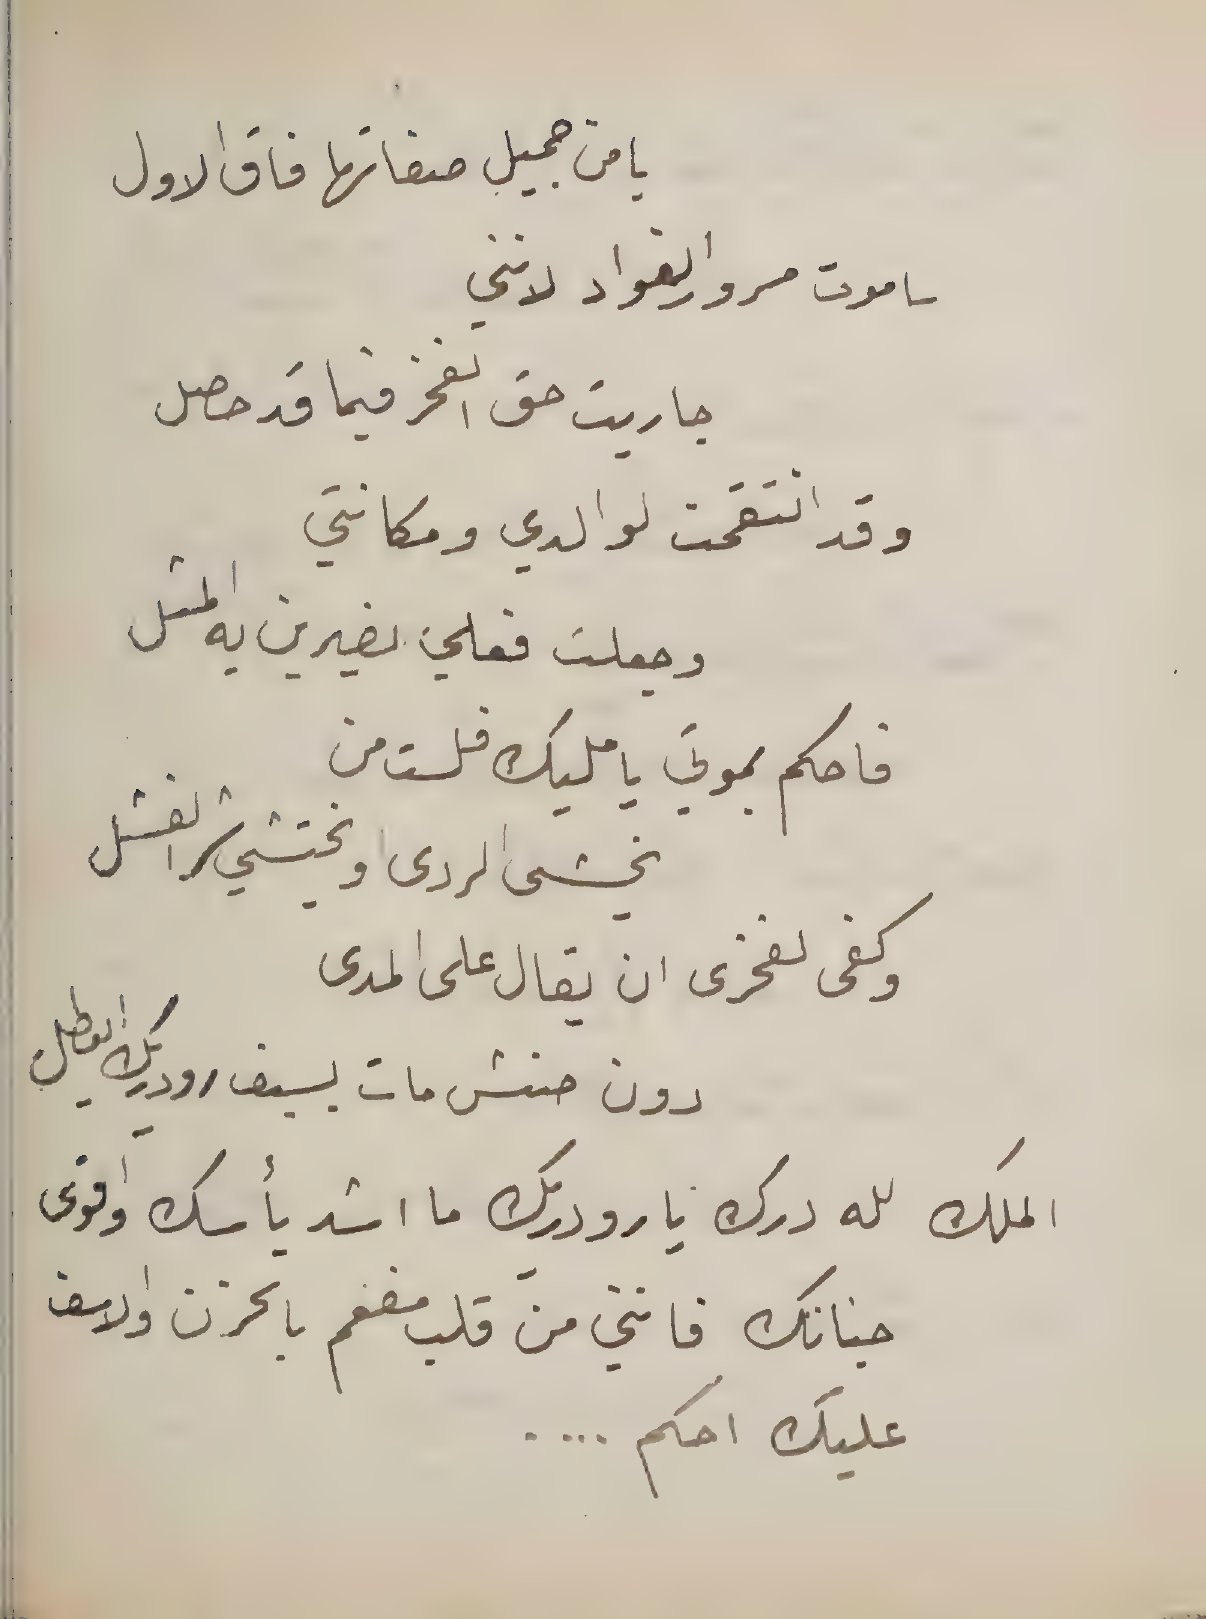 يا من جميل صفاتها فاق الاول
ساموت مسرور الفواد لانني
جاريت حق الفخر فيما قد حصل
وقد انتقمت لوالدي ومكانتي
وجعلت فعلي يضربن به المثل
فاحكم بموتي يا مليك فلست من
يخشى الردى او يختشي شر الفشل
وكفى لفخري ان يقال على المدى
دون صنش مات بسيف رودريك البطل
الملك لله درك يا رودريك ما اشد بأسك واقوى
جنانك فانني من قلب مفعم بالحزن والاسف
عليك احكم ....